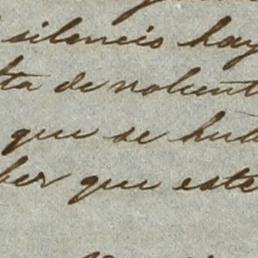 silencio hay
ta de volunt
que se hu
ber que este